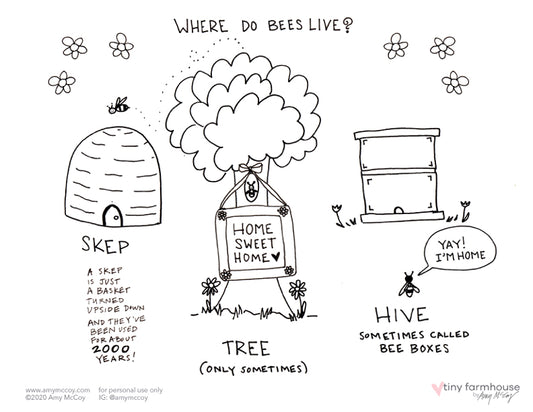 WHERE DO BEES LIVE?
SKEP
A SKEP
IS JUST
A BASKET
TURNED
UPSIDE DOWN
AND THEY'VE
BEEN USED
FOR ABOUT
2000
YEARS!
HOME
SWEET
HOME♥
TREE
(ONLY SOMETIMES)
YAY!
I'M HOME
HIVE
SOMETIMES CALLED
BEE BOXES
www.amymccoy.com for personal use only
©2020 Amy McCoy IG: @amymccoy
tiny farmhouse
by Amy McCoy